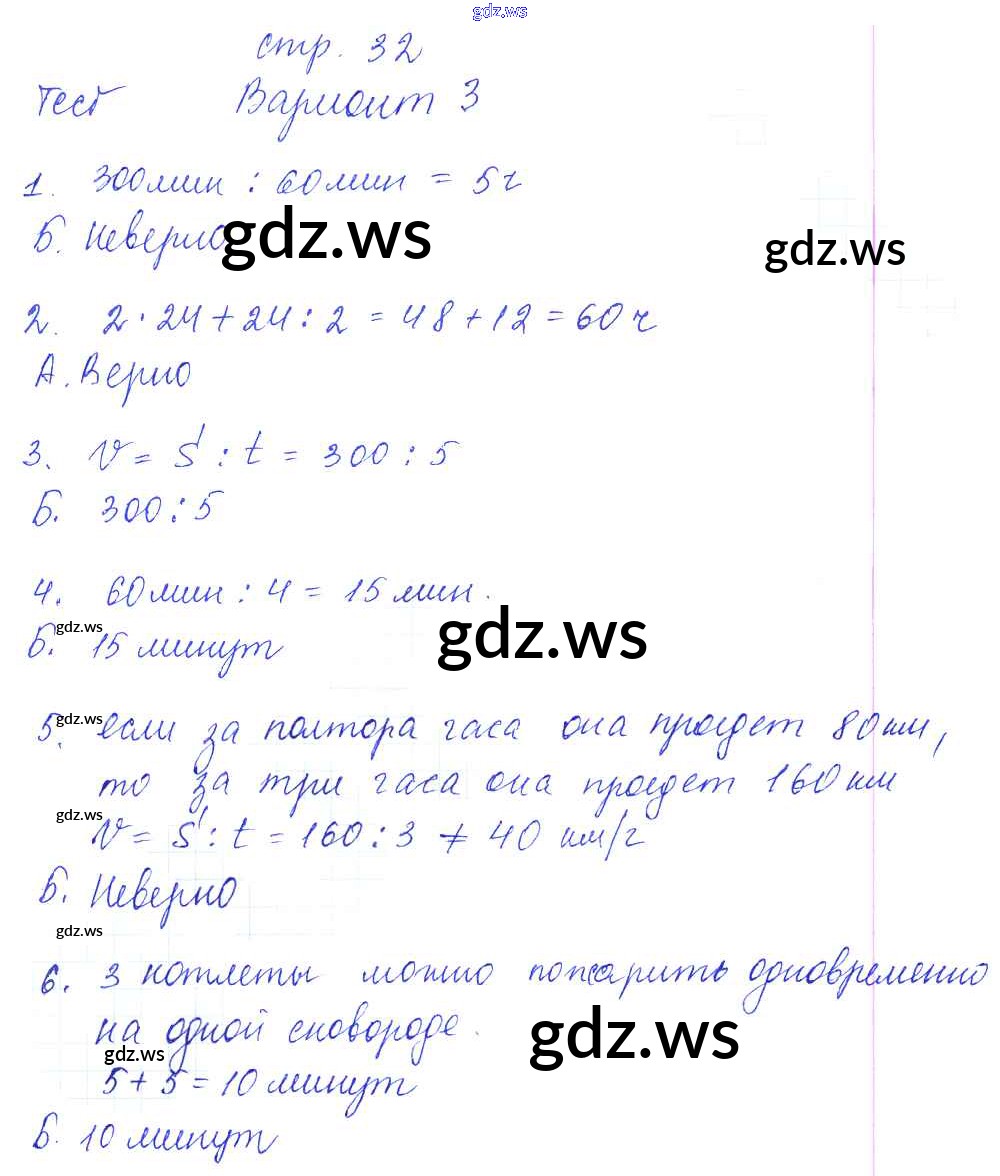 gdz.ws
стр. 32
Тест Вариант 3
1. 300мин : 60мин = 5ч
Б. Неверно
gdz.ws
gdz.ws
2. 2·24+24:2 = 48+12=60ч
А. Верно
3. V = S : t = 300 : 5
Б. 300:5
4. 60мин : 4 = 15 мин.
gdz.ws
Б. 15 минут
gdz.ws
gdz.ws
5. если за полтора часа она проедет 80км,
то за три часа она проедет 160км
gdz.ws
V = S : t = 160 : 3 ≠ 40 км/ч
Б. Неверно
gdz.ws
6. 3 котлеты можно пожарить одновременно
на одной сковороде.
gdz.ws
gdz.ws
5+5=10минут
Б. 10 минут